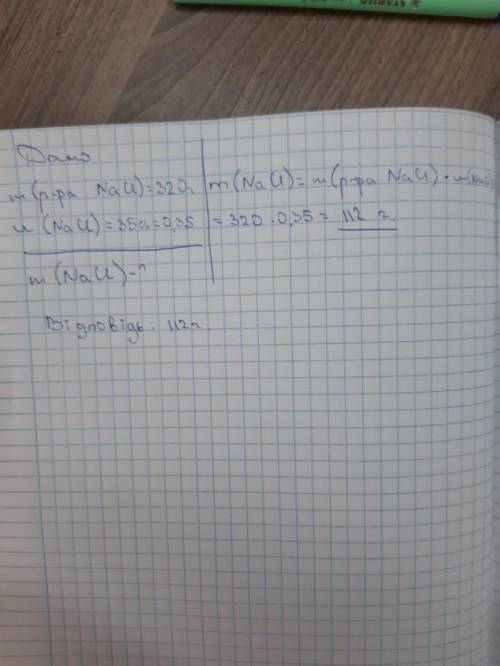 Дано
m(р-ра NaCl)=320г
w (NaCl)=35%=0,35
m (NaCl)-?
m(NaCl)= m(р-ра NaCl) · w(NaCl)
= 320 · 0,35 = 112 г.
Відповідь: 112г.